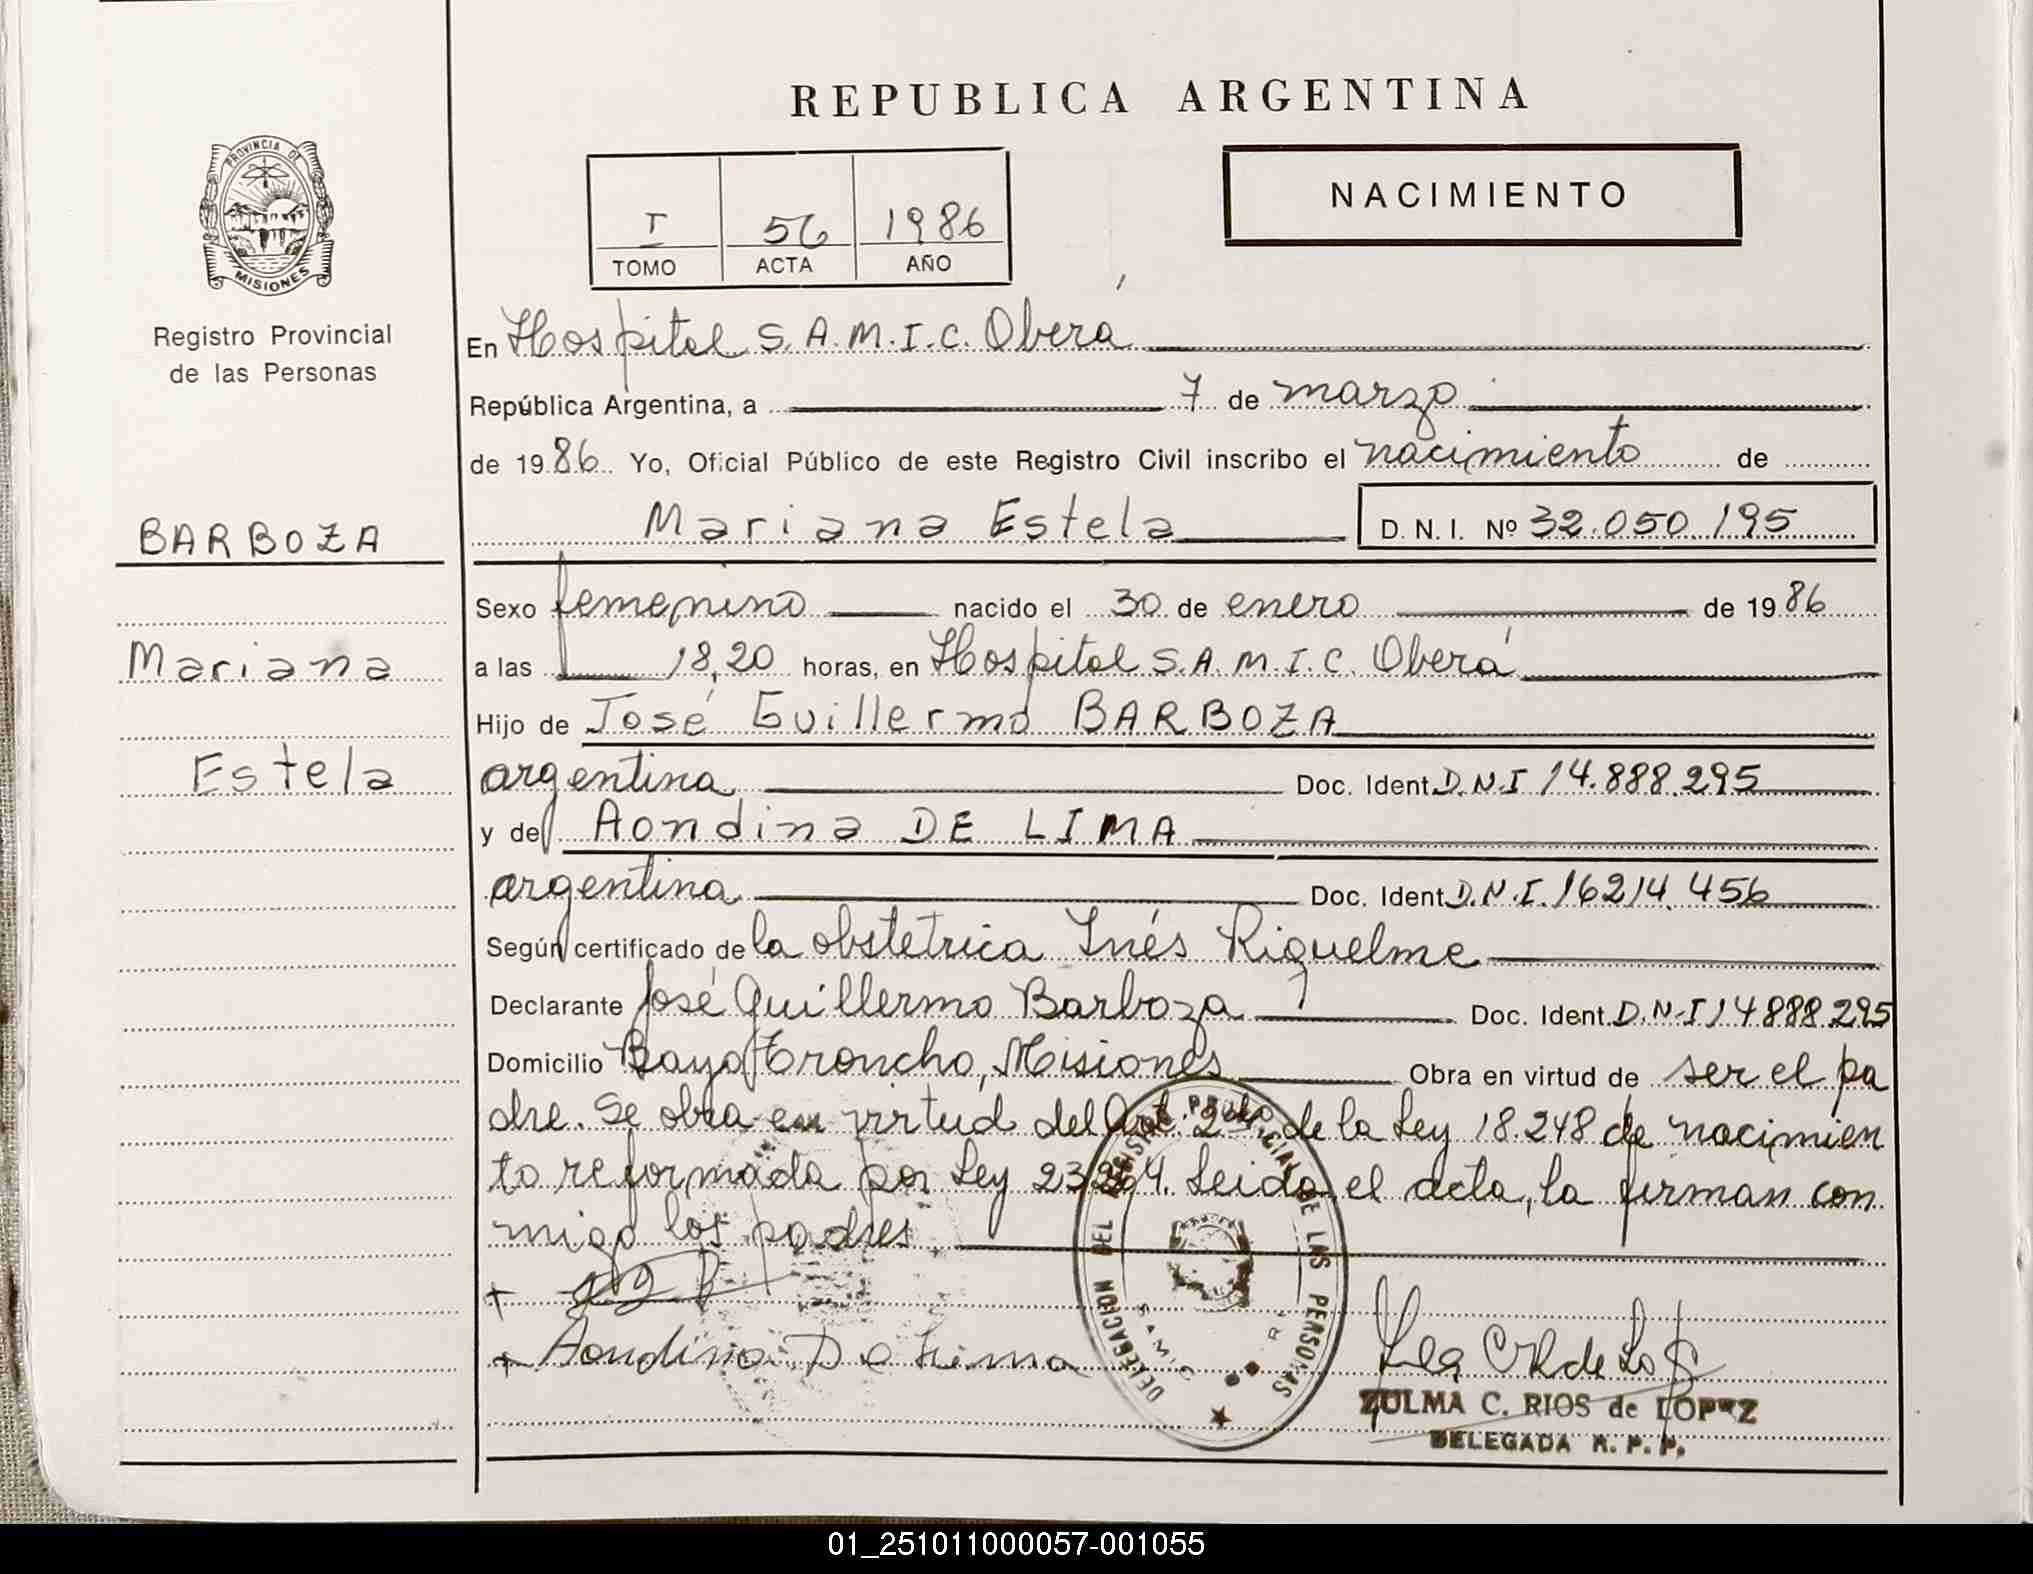 REPUBLICA ARGENTINA
PROVINCIA DE
MISIONES
Registro Provincial
de las Personas
I 56 1986
TOMO ACTA AÑO
NACIMIENTO
En Hospital S.A.M.I.C. Oberá
República Argentina, a 7 de marzo
de 1986 Yo, Oficial Público de este Registro Civil inscribo el nacimiento de
Mariana Estela D. N. I. Nº 32.050.195
BARBOZA
Mariana
Estela
Sexo femenino nacido el 30 de enero de 1986
a las 18,20 horas, en Hospital S.A.M.I.C. Oberá
Hijo de José Guillermo BARBOZA
argentina Doc. Ident D.N.I 14.888.295
y de Aondina DE LIMA
argentina Doc. Ident D.N.I. 16214.456
Según certificado de la obstetrica Inés Riquelme
Declarante José Guillermo Barboza Doc. Ident. D.N-I 14888295
Domicilio Bayo Troncho, Misiones Obra en virtud de ser el pa
dre. Se obra en virtud del Art. 2do. de la Ley 18.248 de nacimien
to reformada por Ley 23.264. Leida el acta, la firman con
migo los padres
+
+ Aondina De Lima
DELEGACION DEL REGISTRO PROVINCIAL DE LAS PERSONAS
SAMIC
ZULMA C. RIOS de LOPEZ
DELEGADA R. P. P.
01_251011000057-001055